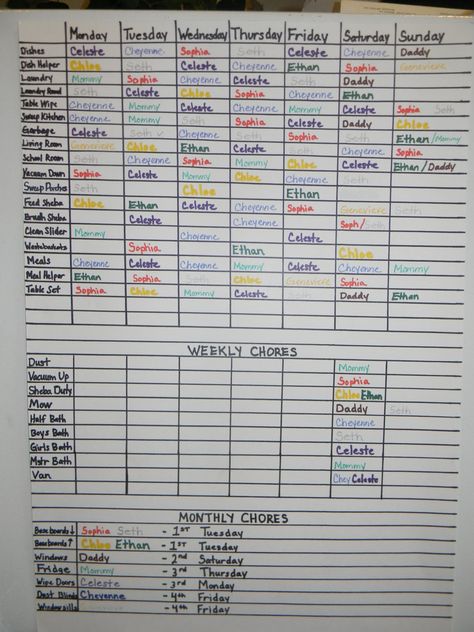 Monday Tuesday Wednesday Thursday Friday Saturday Sunday
Dishes Celeste Cheyenne Sophia Seth Celeste Cheyenne Daddy
Dish Helper Chloe Seth Celeste Cheyenne Ethan Sophia Genevieve
Laundry Mommy Sophia Cheyenne Celeste Seth Daddy
Laundry Seth Celeste Chloe Sophia Cheyenne Ethan
Table Wipe Cheyenne Mommy Celeste Cheyenne Mommy Celeste Sophia Seth
Sweep Kitchen Cheyenne Mommy Seth Sophia Celeste Daddy Chloe
Garbage Celeste Seth Cheyenne Seth Sophia Seth Ethan/Mommy
Living Room Genevieve Chloe Ethan Celeste Seth Cheyenne Seth
School Room Seth Cheyenne Sophia Mommy Chloe Celeste Ethan/Daddy
Vacuum Down Sophia Celeste Mommy Chloe Cheyenne Seth
Sweep Porches Seth Chloe Ethan
Feed Sheba Chloe Ethan Celeste Cheyenne Sophia Genevieve Seth
Brush Sheba Celeste Cheyenne Soph/Seth
Clean Slider Mommy Cheyenne Celeste
Wastebaskets Sophia Ethan Chloe
Meals Cheyenne Celeste Cheyenne Mommy Celeste Cheyenne Mommy
Meal Helper Ethan Sophia Seth Chloe Genevieve Sophia
Table Set Sophia Chloe Mommy Celeste Seth Daddy Ethan
WEEKLY CHORES
Dust Mommy
Vacuum Up Sophia
Sheba Duty Chloe Ethan
Mow Daddy Seth
Half Bath Cheyenne
Boys Bath Seth
Girls Bath Celeste
Mstr Bath Mommy
Van Chey Celeste
MONTHLY CHORES
Baseboards↓ Sophia Seth - 1ST Tuesday
Baseboards↑ Chloe Ethan - 1ST Tuesday
Windows Daddy - 2nd Saturday
Fridge Mommy - 3rd Thursday
Wipe Doors Celeste - 3rd Monday
Dust Blinds Cheyenne - 4th Friday
Windowsills - 4th Friday